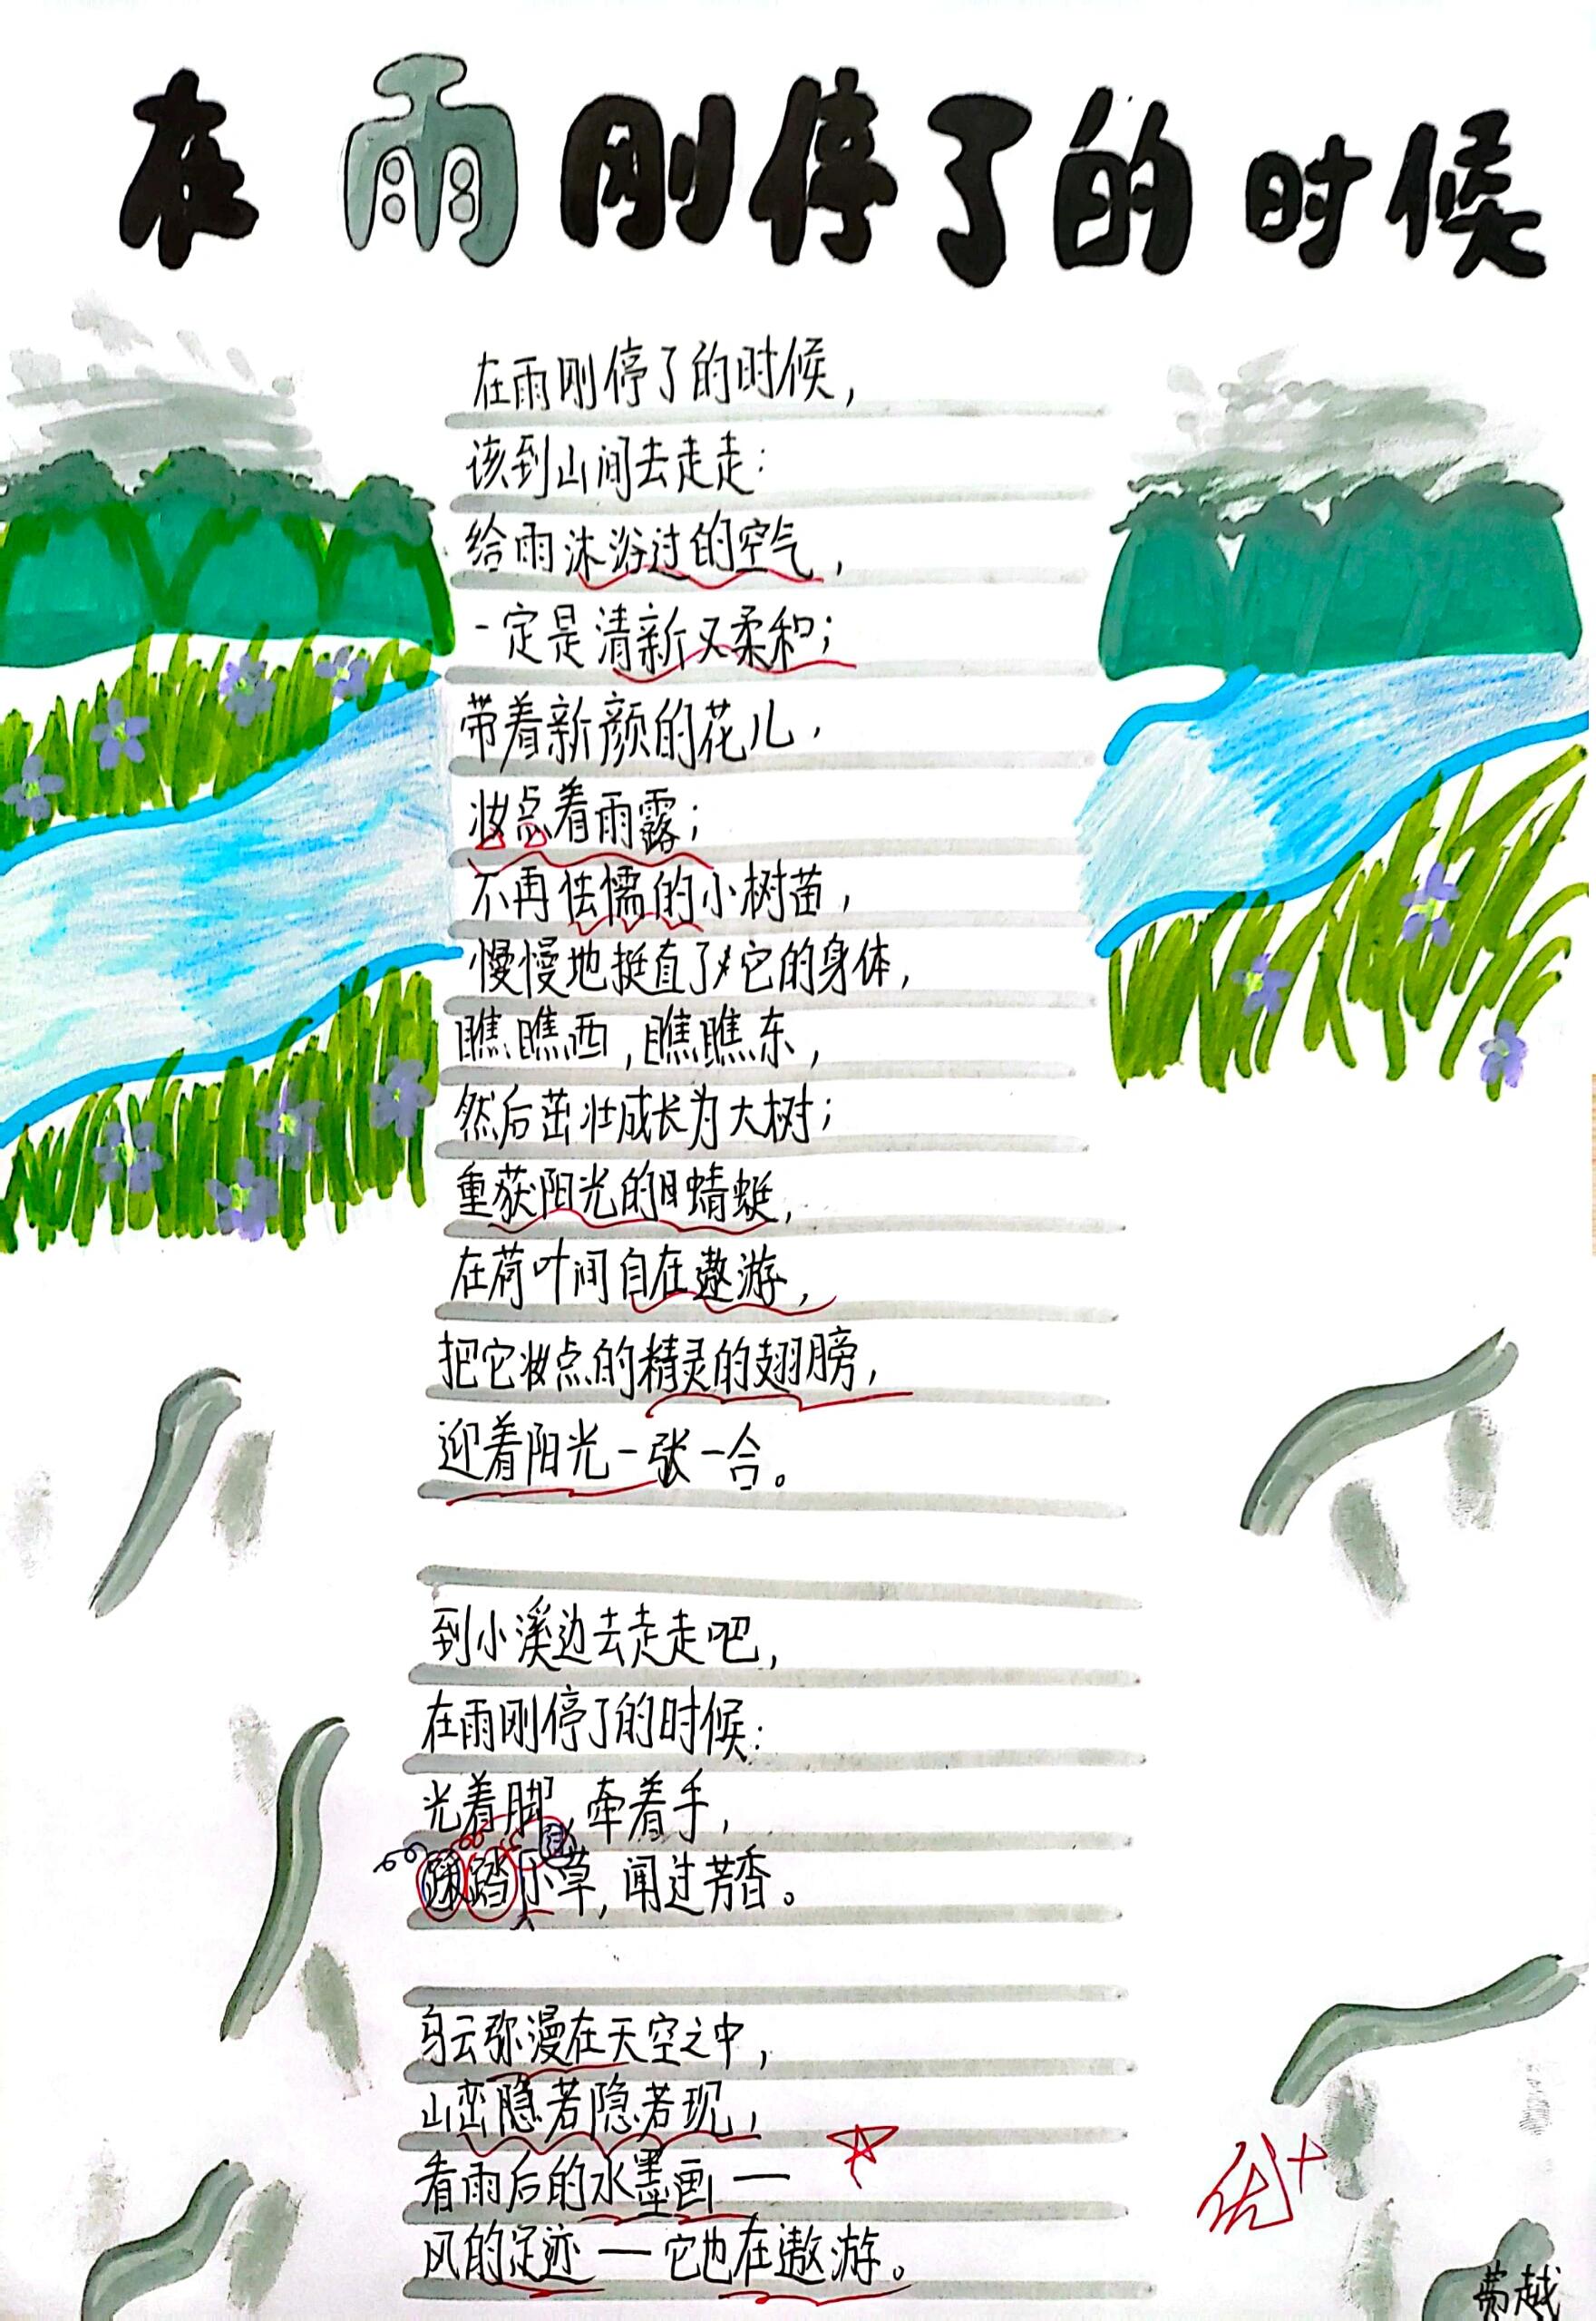 在雨刚停了的时候
在雨刚停了的时候，
该到山间去走走：
给雨沐浴过的空气，
一定是清新又柔和；
带着新颜的花儿，
妆点着雨露；
不再怯懦的小树苗，
慢慢地挺直了它的身体，
瞧瞧西，瞧瞧东，
然后茁壮成长为大树；
重获阳光的蜻蜓，
在荷叶间自在遨游，
把它妆点的精灵的翅膀，
迎着阳光一张一合。
到小溪边去走走吧，
在雨刚停了的时候：
光着脚，牵着手，
踩踏小草，闻过芳香。
乌云弥漫在天空之中，
山峦隐若隐若现，
看雨后的水墨画—
风的足迹—它也在遨游。
优+
越